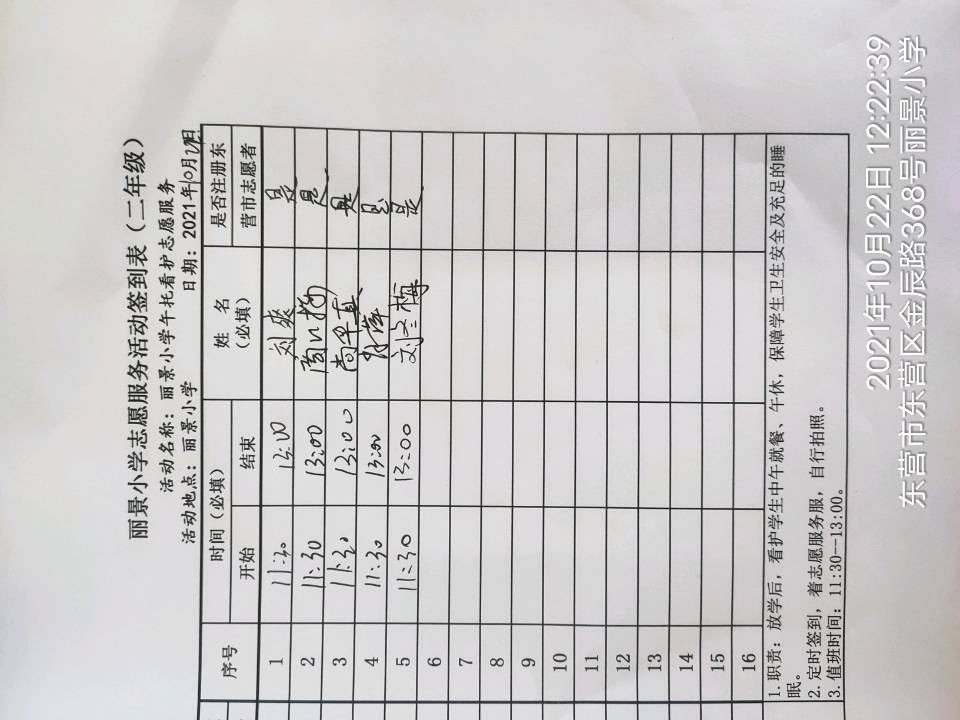 丽景小学志愿服务活动签到表（二年级）
活动名称：丽景小学午托看护志愿服务
活动地点：丽景小学 日期：2021年10月22日
序号 时间（必填） 姓名（必填） 是否注册东营市志愿者
开始 结束
1 11:30 13:00 刘爽 是
2 11:30 13:00 是
3 11:30 13:00 是
4 11:30 13:00 是
5 11:30 13:00 是
6
7
8
9
10
11
12
13
14
15
16
1. 职责：放学后，看护学生中午就餐、午休，保障学生卫生安全及充足的睡
眠。
2. 定时签到，着志愿服务服，自行拍照。
3. 值班时间：11:30--13:00。
2021年10月22日 12:22:39
东营市东营区金辰路368号丽景小学